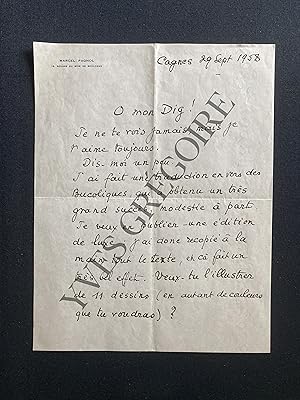 MARCEL PAGNOL
Cagnes 29 Sept 1958
O mon Dig !
Je ne te vois jamais mais je
t'aime toujours.
Dis-moi un peu.
J'ai fait une traduction en vers des
Bucoliques, qui a obtenu un très
grand succès modestie à part
Je veux en publier une édition
de luxe. J'ai donc recopié à la
main tout le texte, et ça fait un
très bel effet. Veux-tu l'illustrer
de 11 dessins (en autant de couleurs
que tu voudras) ?
YVES GREGOIRE